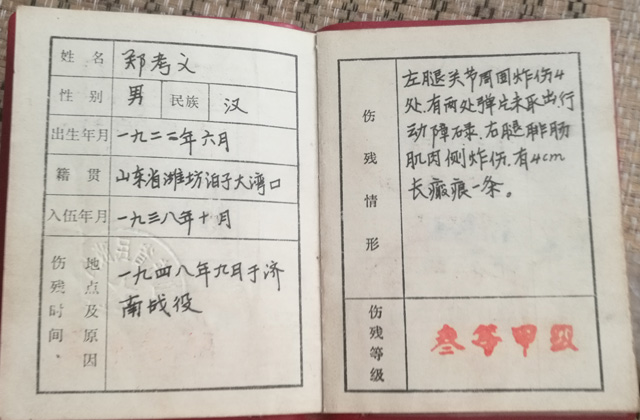 姓名 郑考文
性别 男 民族 汉
出生年月 一九二二年六月
籍贯 山东省潍坊泊子大湾口
入伍年月 一九三八年十月
伤残时间、地点及原因 一九四八年九月于济
南战役
伤残情形
左腿关节周围炸伤4
处.有两处弹片未取出行
动障碍.右腿腓肠
肌内侧炸伤.有4cm
长瘢痕一条。
伤残等级 叁等甲级